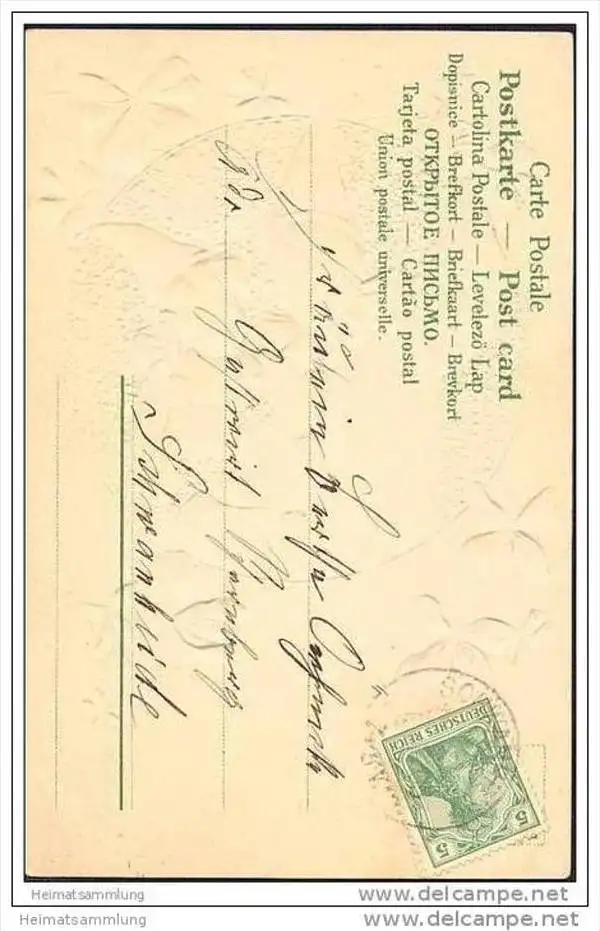 Carte Postale
Postkarte — Post card
Cartolina Postale — Levelező Lap
Dopisnice — Brefkort — Briefkaart — Brevkort
ОТКРЫТОЕ ПИСЬМО.
Tarjeta postal — Cartão postal
Union postale universelle.
Fräulein
Adr.
Schwanheide
DEUTSCHES REICH
5 5
Heimatsammlung
www.delcampe.net
Heimatsammlung
www.delcampe.net